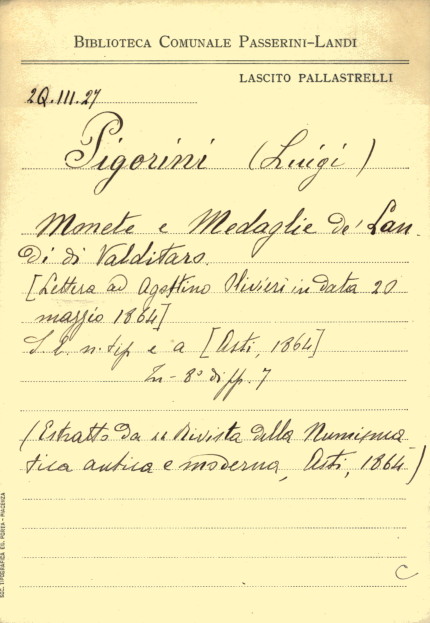 BIBLIOTECA COMUNALE PASSERINI-LANDI
LASCITO PALLASTRELLI
2Q.III.27
Pigorini (Luigi)
Monete e Medaglie de' Lan-
di di Valditaro.
[Lettera ad Agostino Olivieri in data 20
maggio 1864]
S. l. n. tip e a [Asti, 1864]
In-8° di pp. 7
(Estratto da "Rivista della Numisma
tica antica e moderna, Asti, 1864")
C
SOC. TIPOGRAFICA ED. PORTA - PIACENZA